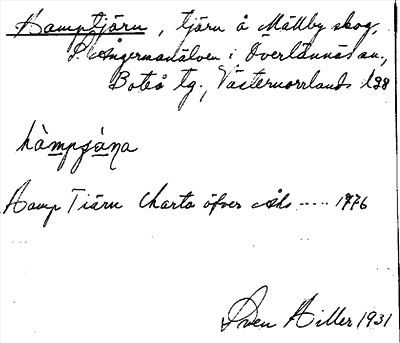 Hamptjärn, tjärn å Mällby skog,
S. Ångermanälven i Överlännäs sn.,
Boteå tg., Västernorrlands l.
hàmpʃàna
Hamp Tiärn Charta öfver Åhs ---- 1776
Sven Hiller 1931